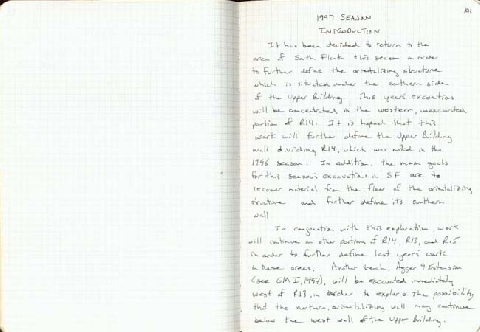 101
1997 SEASON
INTRODUCTION
It has been decided to return to the
area of South Flank this season in order
to further define the orientalizing structure
which is situated under the southern side
of the Upper Building. This year's excavations
will be concentrated in the western, unexcavated
portion of R14. It is hoped that this
work will further define the Upper Building
wall dividing R14, which was noted in the
1996 season. In addition, the main goals
for this season's excavations in SF are to
recover material from the floor of the orientalizing
structure and further define its southern
wall.
In conjunction with this exploration work
will continue on other portions of R14, R13, and R15
in order to further define last year's work
in these areas. Another trench, 9 Extension
(see GM I, 1997), will be excavated immediately
west of R13, in order to explore the possibility
that the northern orientalizing wall may continue
below the west wall of the Upper Building.